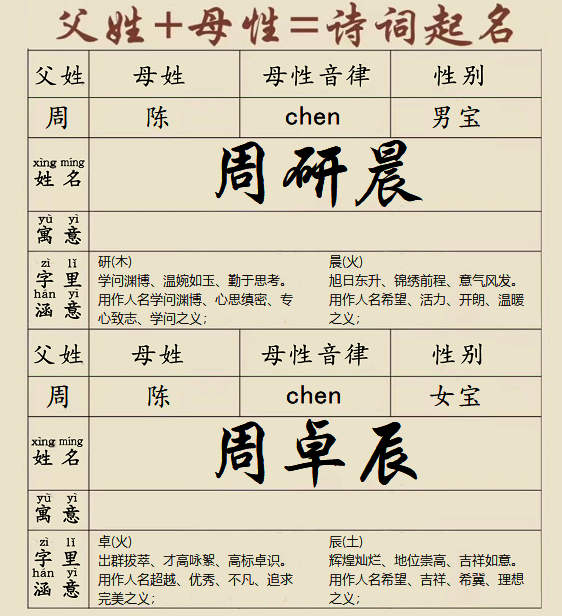 父姓+母性=诗词起名
父姓 母姓 母性音律 性别
周 陈 chen 男宝
xìng míng
姓名 周研晨
yù yì
寓意
zì lǐ
字里
hán yì
涵意
研(木)
学问渊博、温婉如玉、勤于思考。
用作人名学问渊博、心思缜密、专
心致志、学问之义；
晨(火)
旭日东升、锦绣前程、意气风发。
用作人名希望、活力、开朗、温暖
之义；
父姓 母姓 母性音律 性别
周 陈 chen 女宝
xìng míng
姓名 周卓辰
yù yì
寓意
zì lǐ
字里
hán yì
涵意
卓(火)
出群拔萃、才高咏絮、高标卓识。
用作人名超越、优秀、不凡、追求
完美之义；
辰(土)
辉煌灿烂、地位崇高、吉祥如意。
用作人名希望、吉祥、希冀、理想
之义；